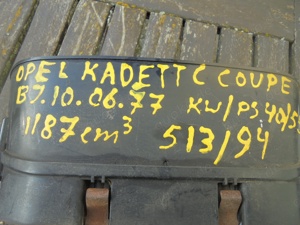 OPEL KADETT C COUPE
BJ.10.06.77 KW/PS 40/5
1187cm³ 513/94